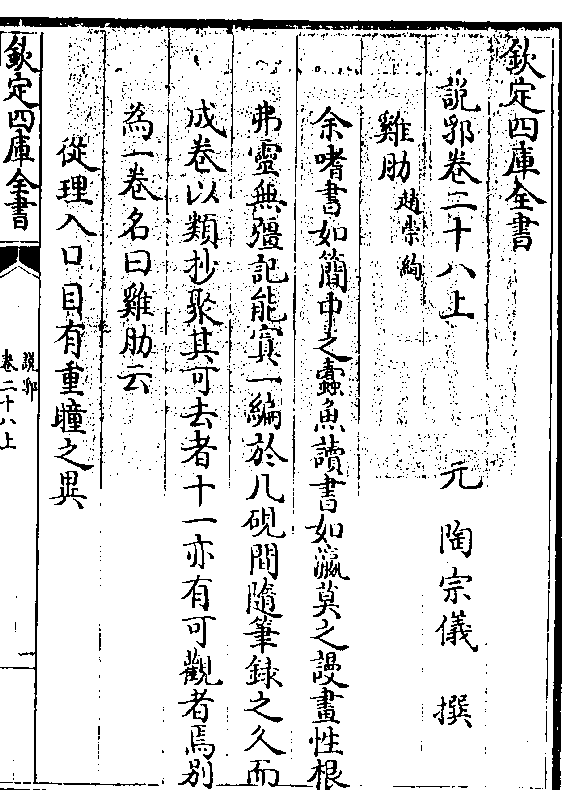 欽定四庫全書
說郛卷二十八上　元　陶宗儀　撰
雞肋　趙崇絢
余嗜書如簡中之蠹魚讀書如瀛莫之謾畫性根
弗靈無彊記能寘一編於几硯間隨筆録之久而
成卷以類抄聚其可去者十一亦有可觀者焉别
為一卷名曰雞肋云
從理入口目有重瞳之異
欽定四庫全書
說郛
卷二十八上
一